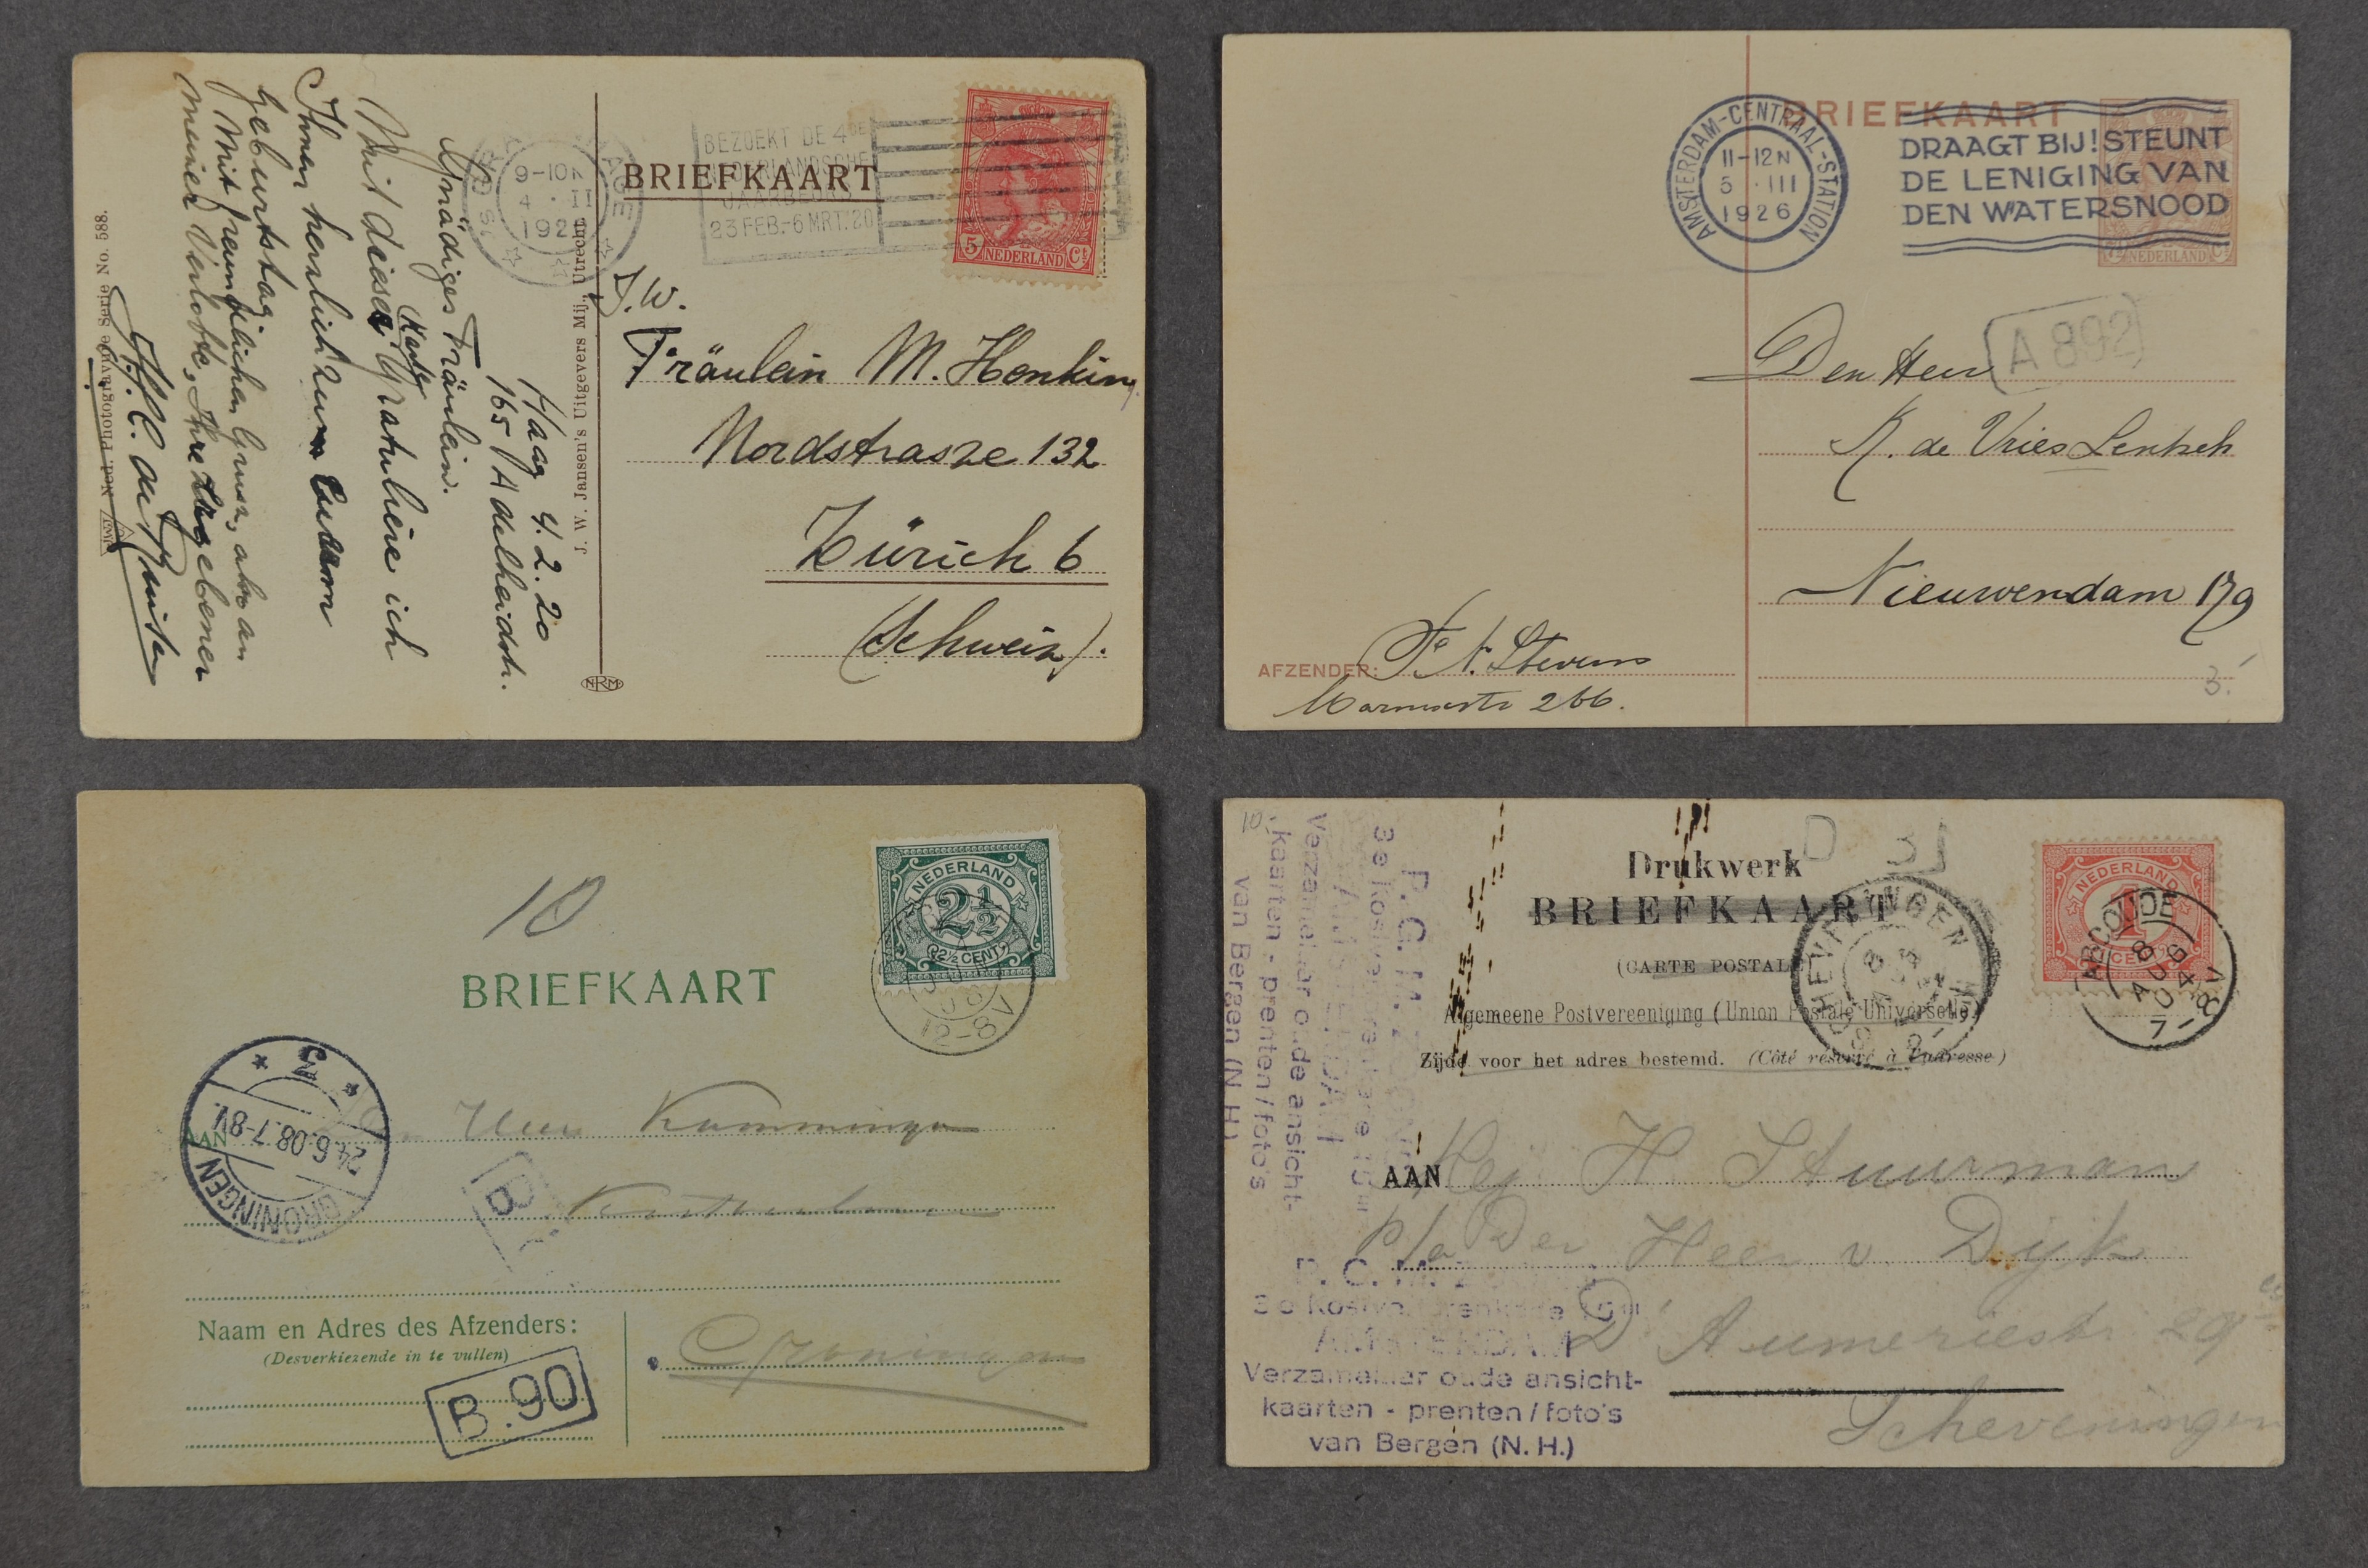 BRIEFKAART
9-10N
4 . II
1920
BEZOEKT DE 4DE
NEDERLANDSCHE
JAARBEURS
23 FEB.-6 MRT.'20
5 NEDERLAND Ct
Fräulein M. Henking
Nordstrasze 132
Zürich 6
(Schweiz).
J. W. Jansen's Uitgevers Mij., Utrecht
NRM
Haag 4.2.20
165 Adelheidstr.
Gnädiges Fräulein.
Mit dieser Karte gratuliere ich
Ihnen herzlich zum Eurem
Geburtstag
Mit freundlichen Gruss, also an
meiner Verlobte, Ihre
Ned. Photogravure Serie No. 588.
BRIEFKAART
AMSTERDAM-CENTRAAL-STATION
11-12N
5 .III
1926
DRAAGT BIJ! STEUNT
DE LENIGING VAN
DEN WATERSNOOD
7½ NEDERLAND Ct
A 892
Den Heer
K. de Vries Lentsch
Nieuwendam 179
AFZENDER: F. A. Stevens
266.
3.
10
NEDERLAND
2½
(2½ CENT)
12-8V
BRIEFKAART
GRONINGEN
24.6.08.7-8V.
5
AAN
Heer Kamminga
B
Naam en Adres des Afzenders:
(Desverkiezende in te vullen)
B.90
Groningen
10.-
Drukwerk
D 3
BRIEFKAART
(CARTE POSTALE)
Algemeene Postvereeniging (Union Postale Universelle)
Zijde voor het adres bestemd. (Côté réservé à l'adresse)
SCHEVENINGEN
NEDERLAND
1
CENT
ABCOUDE
AAN Mej H. Stuurman
p/a Den Heer v. Dijk
Aumeriestr 29
Scheveningen
P. C. M.
3e Kostverlorenkade
AMSTERDAM
Verzamelaar oude ansicht-
kaarten - prenten / foto's
van Bergen (N.H.)
P. C. M.
3e Kostverlorenkade
AMSTERDAM
Verzamelaar oude ansicht-
kaarten - prenten / foto's
van Bergen (N.H.)